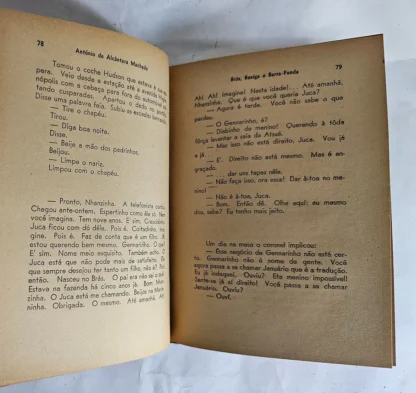 78
António de Alcântara Machado
Tomou o coche Hudson que estava à sua es-
pera. Veio desde a estação até a avenida Higie-
nópolis com a cabeça pra fora do automóvel sol-
tando cusparadas. Apertou o dedo no portão.
Disse uma palavra feia. Subiu as escadas berrando.
— Tire o chapéu.
Tirou.
— Diga boa noite.
Disse.
— Beije a mão dos padrinhos.
Beijou.
— Limpe o nariz.
Limpou com o chapéu.
— Pronto, Nharinha. A telefonista cortou.
Chegou ante-ontem. Espertinho como êle só. Nem
você imagina. Tem nove anos. E' sim. Crescidinho.
Juca ficou com dó dêle. Pois é. Coitadinho. Ima-
gine. Pois é. Faz de conta que é um filho. Já
estou querendo bem mesmo. Gennarinho. O quê?
E' sim. Nome meio esquisito. Também acho. O
Juca está que não pode mais de satisfeito. Ele
que sempre desejou ter tanto um filho, não é? Pois
então. Nasceu no Brás. O pai era não sei o quê.
Estava na fazenda há cinco anos já. Bom, Nhara-
zinha. O Juca está me chamando. Beijos na Maria-
zinha. Obrigada. O mesmo. Até amanhã. Ah!
Brás, Bexiga e Barra-Funda
79
Ah! Ah! Imagine! Nesta idade!... Até amanhã,
Nharinha. Que é que você queria Juca?
— Agora é tarde. Você não sabe o que
perdeu.
— O Gennarinho, é?
— Diabinho de menino! Querendo à tôda
fôrça levantar a saia da Atsué.
— Mas isso não está direito, Juca. Vou já
e já...
— E'. Direito não está mesmo. Mas é en-
graçado.
— ... dar uns tapas nêle.
— Não faça isso, ora essa! Dar à-toa no me-
nino!
— Não é à-toa, Juca.
— Bom. Então dê. Olhe aqui: eu mesmo
dou, sabe? Eu tenho mais jeito.
Um dia na mesa o coronel implicou:
— Êsse negócio de Gennarinho não está cer-
to. Gennarinho não é nome de gente. Você
agora passa a se chamar Januário que é a tradução.
Eu já indaguei. Ouviu? Eta menino impossível!
Sente-se já aí direito! Você passa a se chamar
Januário. Ouviu?
— Ouví.